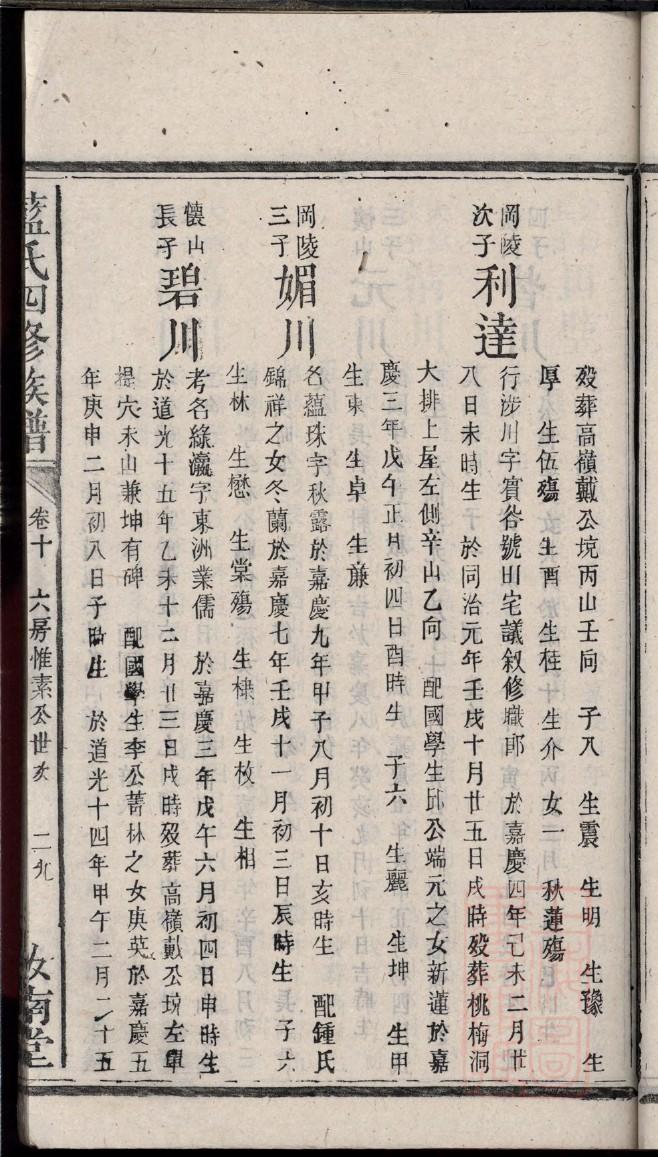 歿葬高嶺戴公境丙山壬向 子八 生震 生明 生豫 生
厚 生伍殤 生酉 生桂 生介 女一 秋蓮殤
岡陵
次子
利達
行涉川字賓谷號田宅議敘修職郎 於嘉慶四年己未二月廿
八日未時生 於同治元年壬戌十月廿五日戌時歿葬桃梅洞
大排上屋左側辛山乙向 配國學生邱公端元之女新蓮於嘉
慶三年戊午正月初四日酉時生 子六 生麗 生坤 生甲
生東 生卓 生廉
岡陵
三子
媚川
名蘊珠字秋露於嘉慶九年甲子八月初十日亥時生 配鍾氏
錦祥之女冬蘭於嘉慶七年壬戌十一月初三日辰時生 子六
生林 生懋 生棠殤 生棣 生枚 生相
懷山
長子
碧川
考名綠瀛字東洲業儒 於嘉慶三年戊午六月初四日申時生
於道光十五年乙未十二月廿三日戌時歿葬高嶺戴公境左單
提穴未山兼坤有碑 配國學生李公菁林之女庚英於嘉慶五
年庚申二月初八日子時生 於道光十四年甲午二月二十五
藍氏四修族譜 卷十 六房惟素公世次 二九 汝南堂